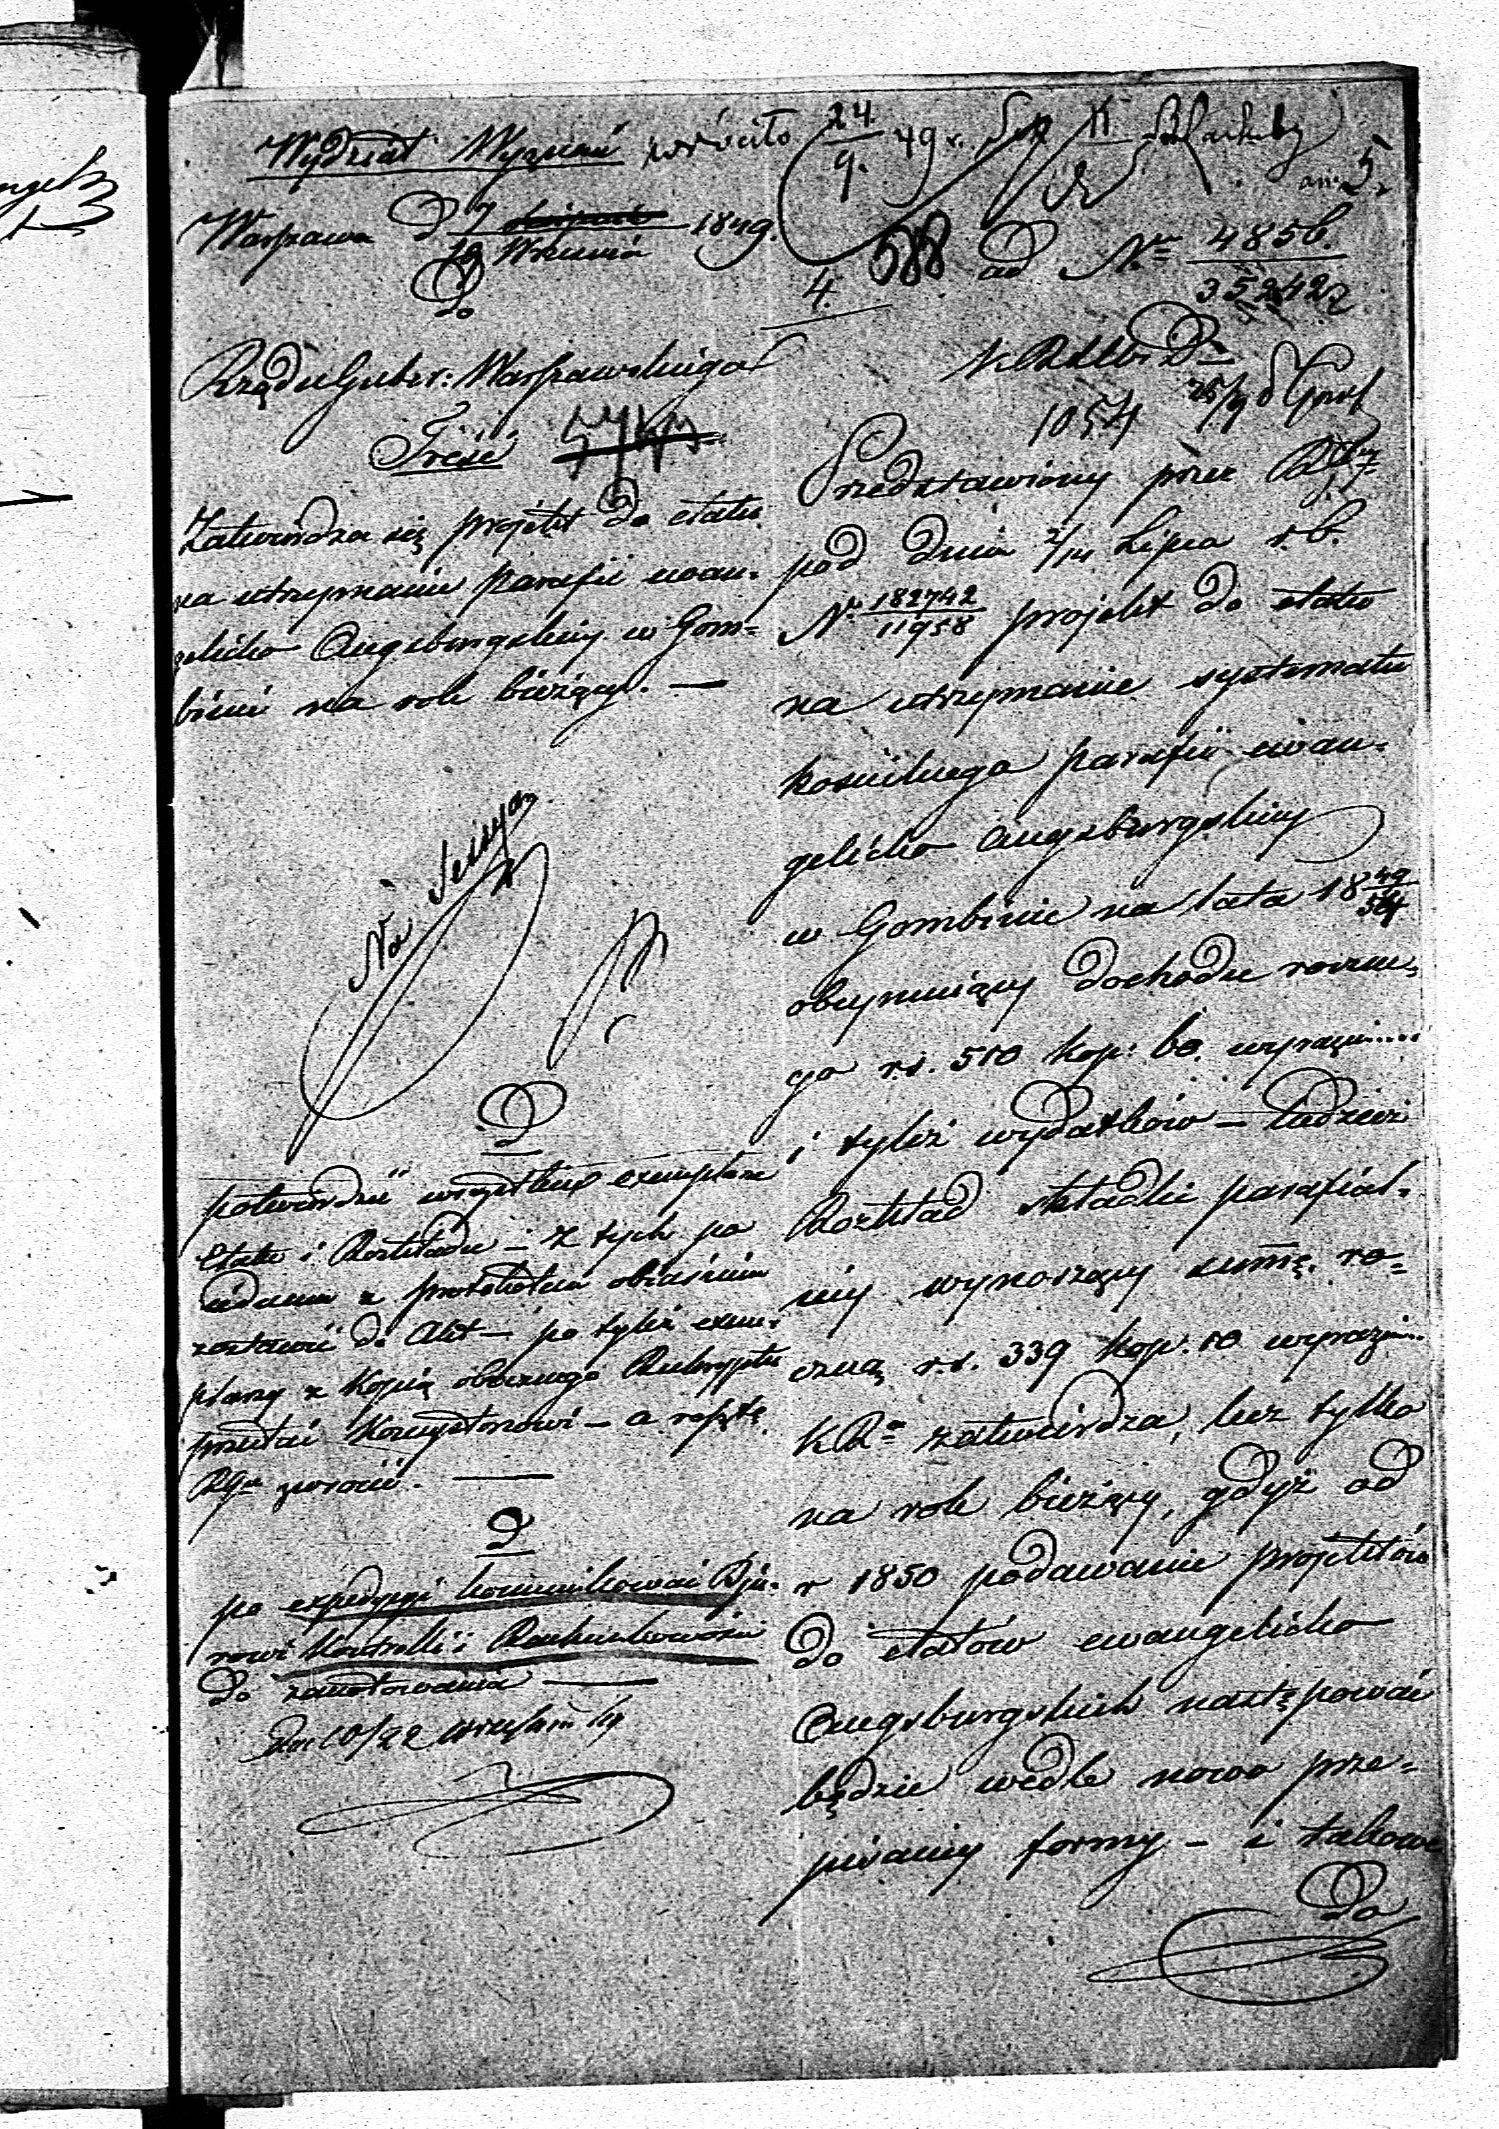 Wydział Wyznań wróciło 24/9 49 r.
Warszawa d 7/19 Września 1849.
4. 588 ad Nr 4856/35242
Do
Rządu Guber: Warszawskiego
Treść
Zatwierdza się projekt do etatu
na utrzymanie parafii ewan-
gelicko Augsburgskiej w Gom-
binie na rok bieżący. —
Na Sessyą
D
potwierdzić wszystkie exemplarze
Etatu i Rozkładu — z tych po
jednem z protokółem objaśnień
zostawić do Akt — po tyleż exem-
plarzy z kopią obecnego Reskryptu
przesłać Konsystorzowi — a resztę
RGu zwrócić. —
D
po expedycyi komunikować Dju-
rowi Kontrolli i Rachunkowości
do zanotowania —
10/22 Września 49
1054 25/9
Przedstawiony przez RG
pod dniem 2/14 Lipca r.b.
Nr 182742/11958 projekt do etatu
na utrzymanie systematu
kościelnego parafii ewan-
gelicko Augsburgskiej
w Gombinie na lata 1849/54
obejmujący dochodu roczne-
go r.s. 510 kop: 60. wyraźnie....
i tyleż wydatków — tudzież
Rozkład składki parafial-
nej wynoszący summę ro-
czną r.s. 339 kop: 10 wyraźnie...
KR zatwierdza, lecz tylko
na rok bieżący, gdyż od
r 1850 podawanie projektów
do etatów ewangelicko
Augsburgskich następować
będzie wedle nowo prze-
pisanej formy — i takowe
Do